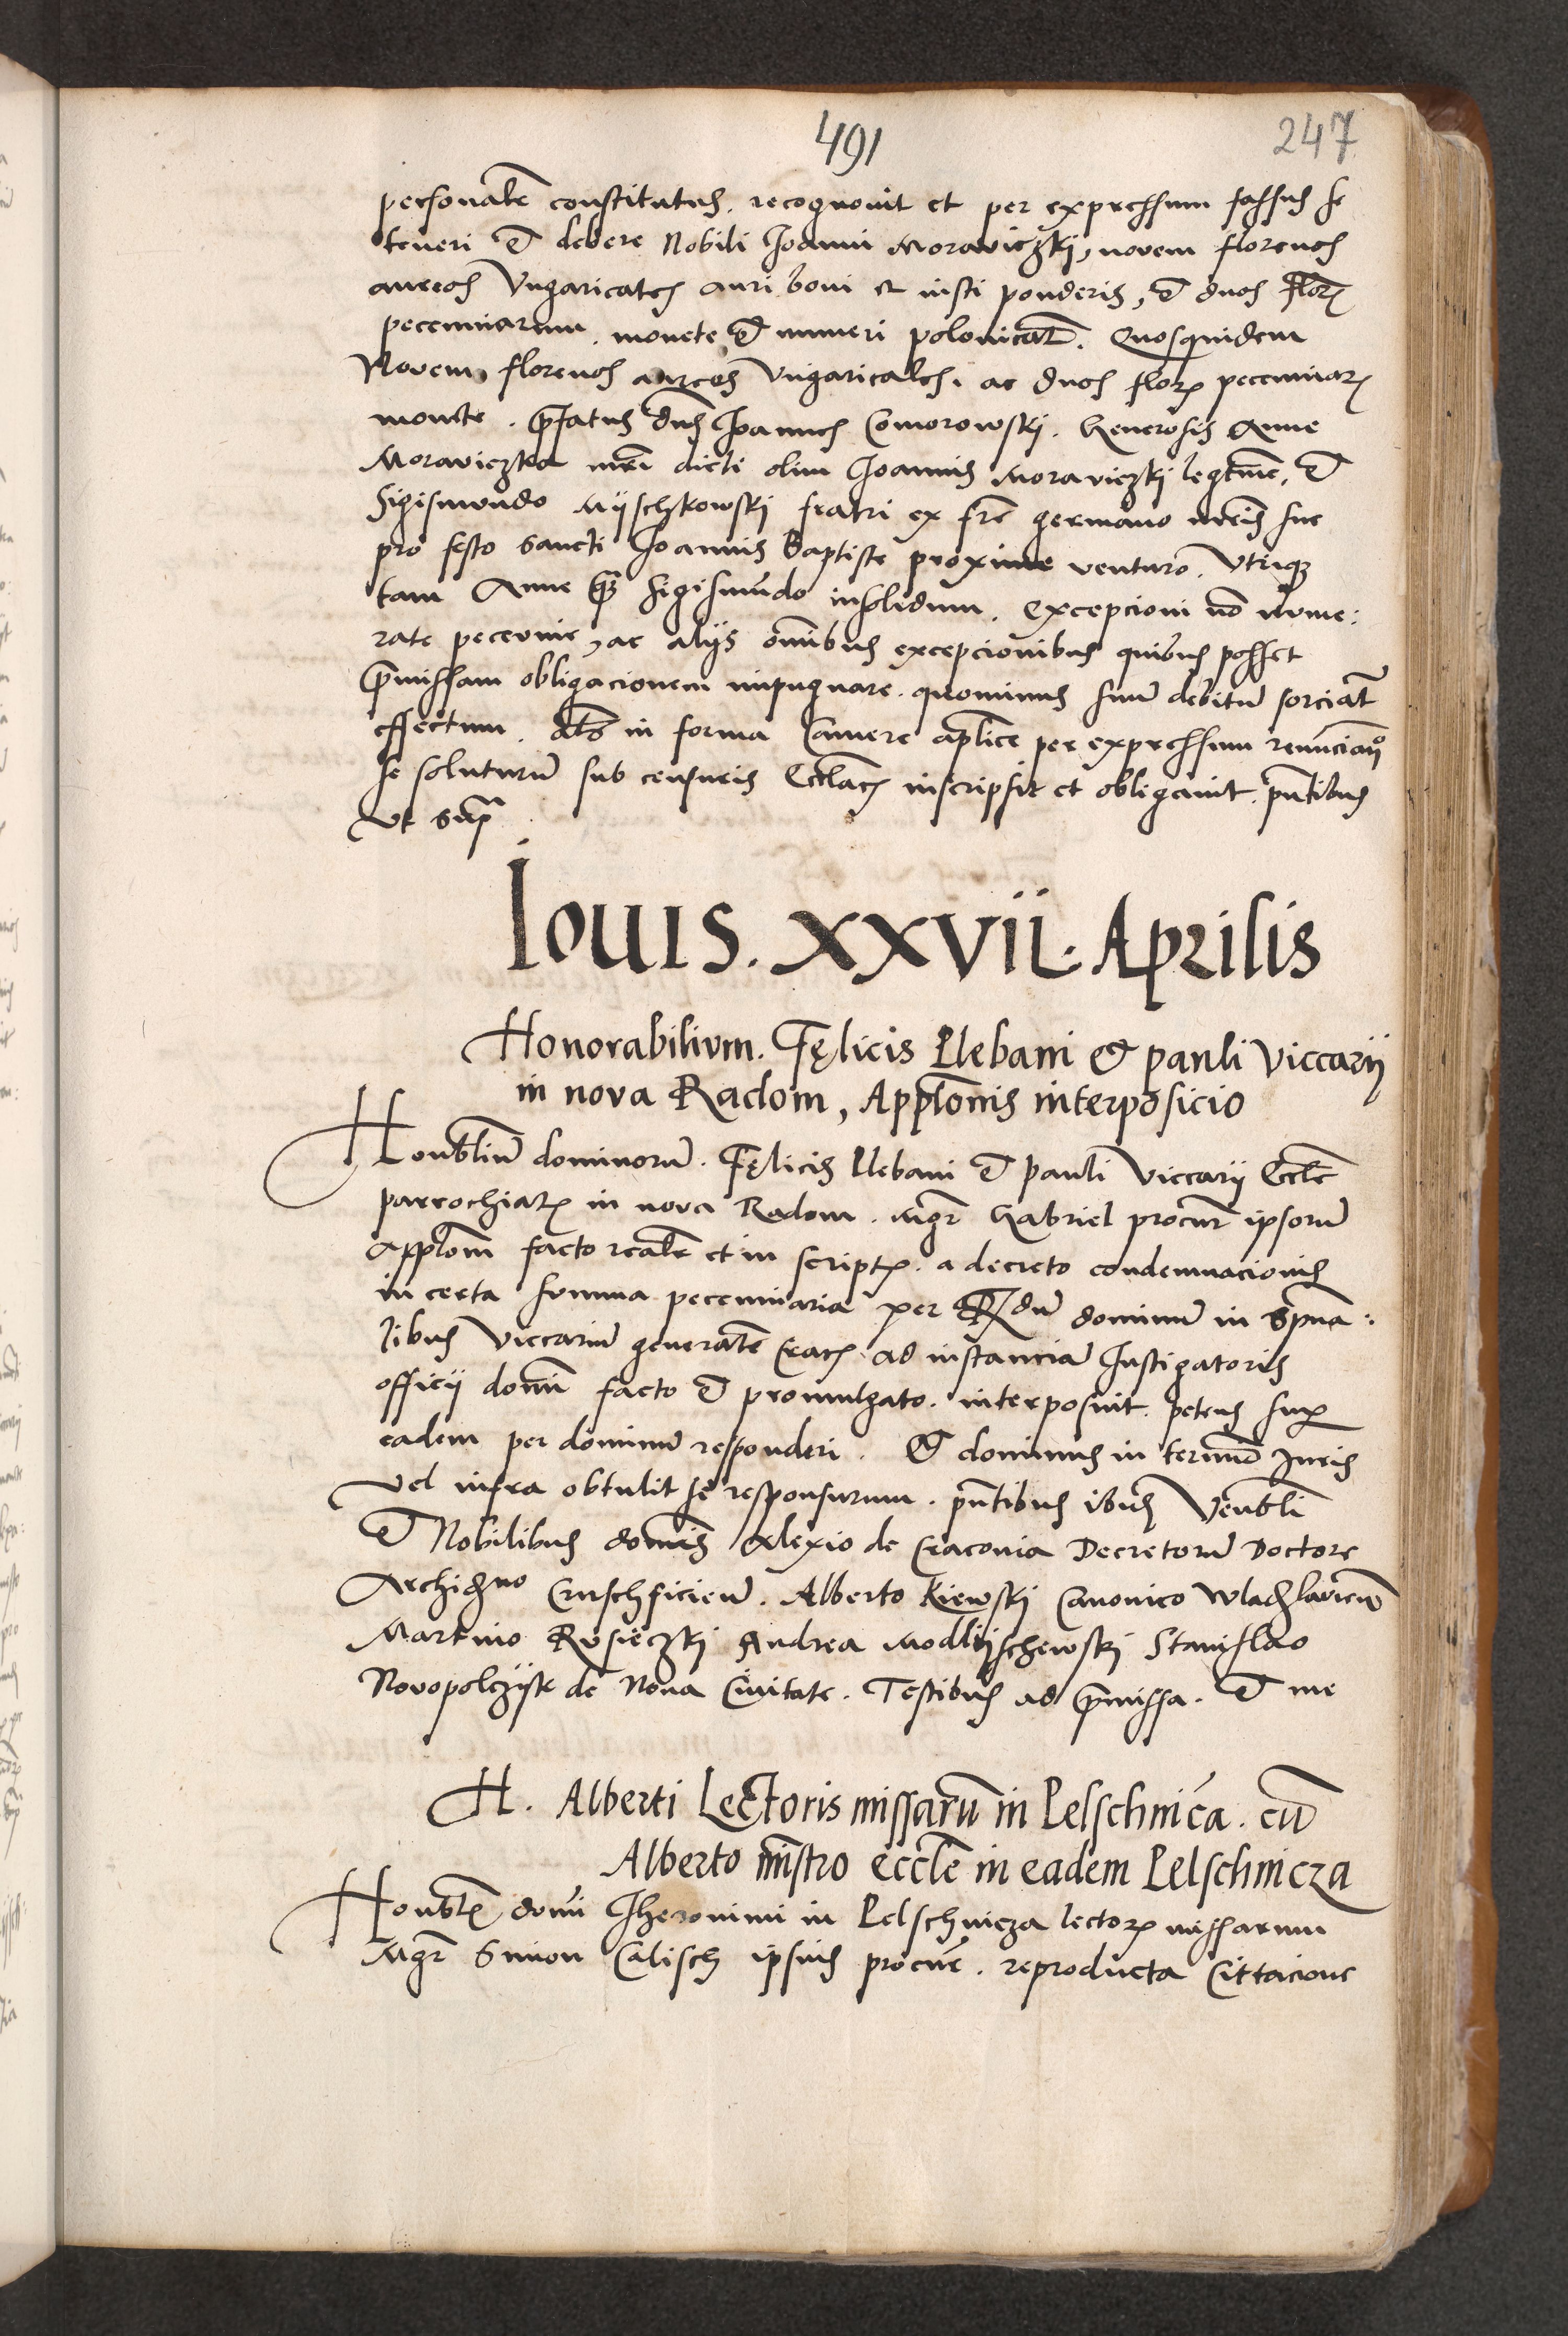 491
247
personalr̃ constitutus. recognovit et per expressum fassus se
teneri et debere Nobili Joanni Moraviczkj, novem florenos
aureos Vngaricales auri boni et iusti ponderis, et duos floñ
pecuniarum. monete et numeri polonicał. Quosquidem
Novem florenos aureos Vngaricales. ac duos floñ pecuniarũ
monete. p̃fatus dñs Joannes Comorowskj. Generosis Anne
Moraviczka ux̃ri dicti olim Joannis Moraviczkj legtĩme, et
Sigismundo Myschkowskj fratri ex frẽ germano uxoris sue
pro festo Sancti Joannis Baptiste proxime venturo. Vtriqꝫ
tam Anne qꝫ Sigismũdo insolidum. Excepcioni nõ nume:
rate pecunie, ac alijs om̃ibus excepcionibus quibus posset
p̃missam obligacionem impugnare. quominus suũ debitũ sorciãt
effectum. in forma Camere aplĩce per expressum renunciañ
se soluturũ sub censuris Ecclãs inscripsit et obligavit. pñtibus
vt sup̃
Iouis. XXVII. Aprilis
Honorabilium. Fęlicis Plebani & pauli Viccarij
in nova Radom, Appłonis interposicio
Honoblĩũ dominorũ. Fęlicis Plebani et Pauli Viccarij Ecclẽ
parrochiał in nova Radom. Mgr̃ Gabriel procur̃ ipsorũ
appłonẽ facto realr̃ et in script̃. a decreto condemnacionis
in certa summa pecuniaria per Rdũ dominũ in Spũa:
libus Viccariũ generalẽ Crac̃ ad instanciã Instigatoris
officij domĩ facto et promulgato. interposuit. petens suꝑ
eadem per dominũ responderi. Et dominus in termĩo Juris
vel infra obtulit se responsurum. pñtibus ibidẽ Venbli
et Nobilibus domĩs Alexio de Cracovia Decretorũ Doctore
Archidno Cruschficieñ. Alberto Kiewskj Canonico Wladislavieñ
Martino Rusieczkj Andrea Modlijschewskj Stanislao
Novopolczyk de Nova Civitate. Testibus ad p̃missa. et me
H. Alberti Lectoris missarũ in Pelschnica. cũ
Alberto mĩstro ecclẽ in eadem Pelschnicza
Honoblĩs domĩ Jheronimi in Pelschnicza lector̃ missarum
Mgr̃ Simon Calisch ipsius procur̃. reproducta Cittacione